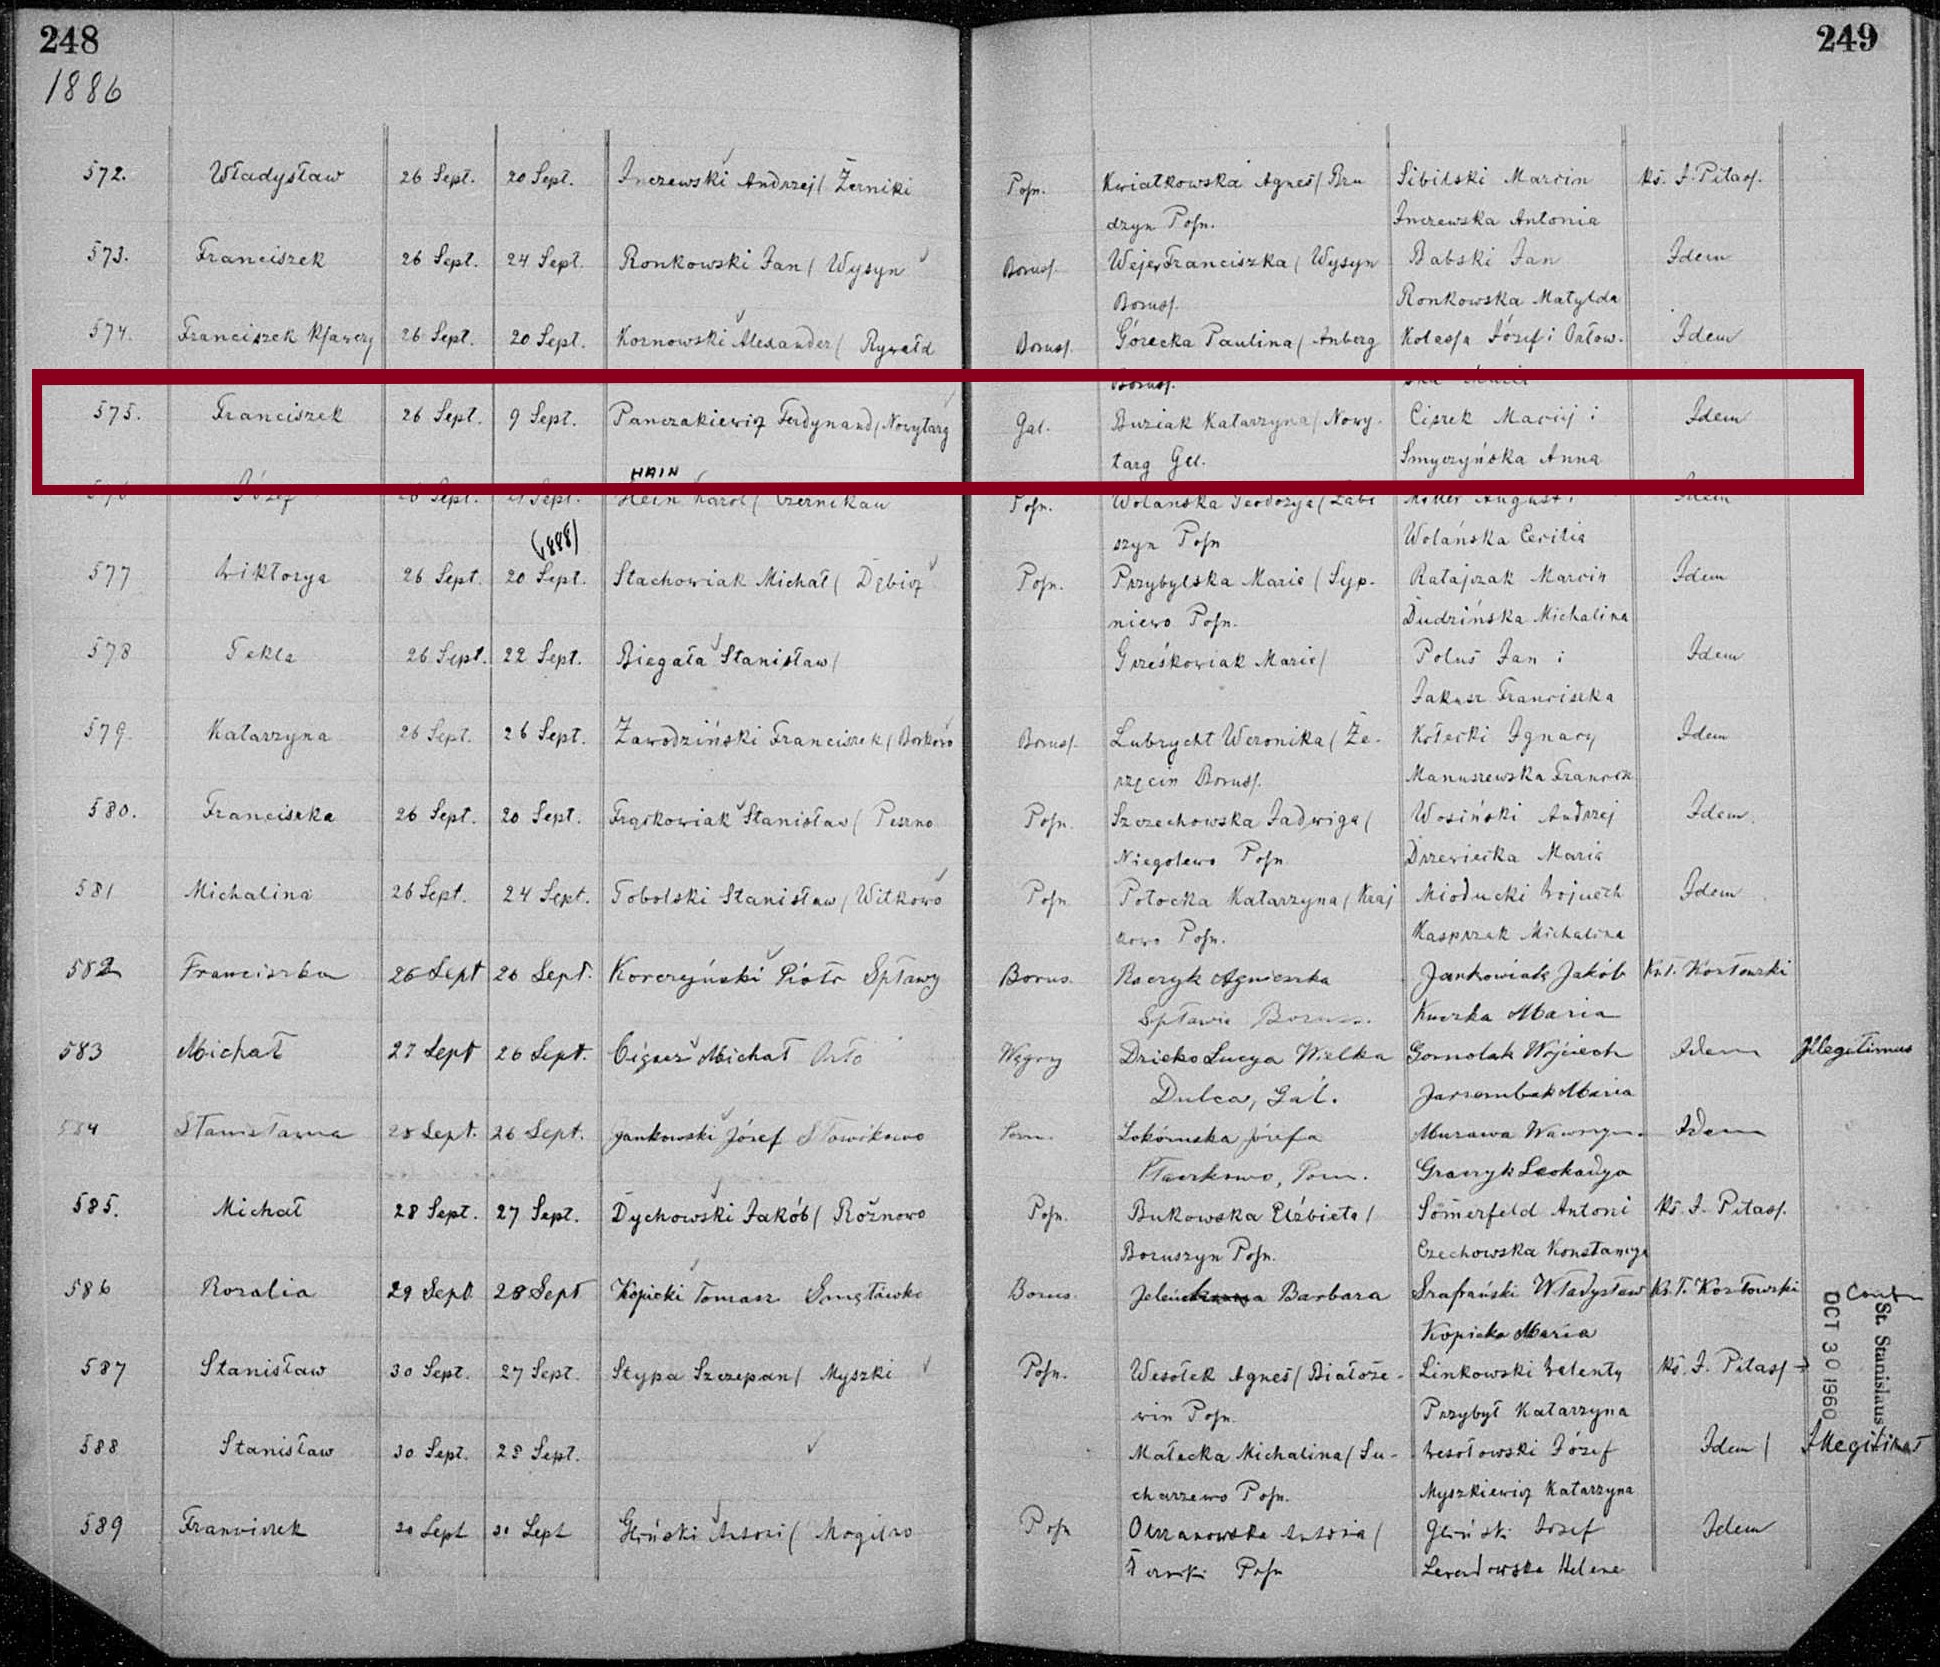 248
249
1886
572. Władysław 26 Sept. 20 Sept. Inczewski Andrzej/ Żerniki Posn. Kwiatkowska Agneś/ Bru Sibilski Marcin ks. J. Pitass.
dzyn Posn. Inczewska Antonia
573. Franciszek 26 Sept. 24 Sept. Ronkowski Jan/ Wysyn Boruss. Wejer Franciszka/ Wysyn Babski Jan Idem
Boruss. Ronkowska Matylda
574. Franciszek Ksawery 26 Sept. 20 Sept. Kornowski Alexander/ Rywałd Boruss. Górecka Paulina/ Anberg Kolassa Józef i Orłow- Idem
Boruss. ska Maria
575. Franciszek 26 Sept. 9 Sept. Panczakiewicz Ferdynand/ Nowytarg Gal. Buziak Katarzyna/ Nowy- Ciszek Maciej i Idem
targ Gal. Smyczyńska Anna
HAIN
576 Józef 26 Sept. 21 Sept. Hein Karol/ Czernikau Posn. Wolańska Teodozya/ Łabi Miller August i Idem
szyn Posn Wolańska Cecilia
(1888)
577 Wiktorya 26 Sept. 20 Sept. Stachowiak Michał/ Dębicz Posn. Przybylska Maria/ Syp- Ratajczak Marcin Idem
niewo Posn. Dudzińska Michalina
578 Tekla 26 Sept. 22 Sept. Biegała Stanisław/ Grześkowiak Maria/ Poluś Jan i Idem
Jakusz Franciszka
579. Katarzyna 26 Sept. 26 Sept. Zawodziński Franciszek/ Borkowo Boruss. Lubrycht Weronika/ Że- Kołecki Ignacy Idem
rzęcin Boruss. Manuszewska Francisz
580. Franciszka 26 Sept. 20 Sept. Frąckowiak Stanisław/ Peszno Posn. Szczechowska Jadwiga/ Wosiński Andrzej Idem
Niegolewo Posn Drzewiecka Maria
581 Michalina 26 Sept. 24 Sept. Tobolski Stanisław/ Witkowo Posn Potocka Katarzyna/ Kraj Mioducki Wojciech Idem
kowo Posn. Kasprzak Michalina
582 Franciszka 26 Sept 26 Sept. Korczyński Piotr Spławy Borus. Raczyk Agnieszka Jankowiak Jakób Ks. T. Kozłowski
Spławie Boruss. Kuczka Maria
583 Michał 27 Sept 26 Sept. Michał Węgry Dzieko Lucya Wielka Gomolak Wojciech Idem Illegitimus
Dulca, Gal. Jarzembak Maria
584 Stanisława 28 Sept. 26 Sept. Jankowski Józef Sławikowo Pozn. Józefa Murawa Wawrzyn. Idem
Pozn. Graczyk Leokadya
585. Michał 28 Sept. 27 Sept. Dychowski Jakób/ Rożnowo Posn. Bukowska Elżbieta/ Somerfeld Antoni ks. J. Pitass.
Boruszyn Posn. Czechowska Konstancya
586 Rozalia 29 Sept 28 Sept Kopicki Tomasz Smętówko Borus. Barbara Szafrański Władysław Ks. T. Kozłowski
Kopicka Maria
587 Stanisław 30 Sept. 27 Sept. Stypa Szczepan/ Myszki Posn. Wesołek Agneś/ Białoże- Linkowski Walenty ks. J. Pitass
win Posn. Przybył Katarzyna
OCT 30 1960
St. Stanislaus
588 Stanisław 30 Sept. 25 Sept. Małecka Michalina/ Su- Wesołowski Józef Idem/ Illegitimat
charzewo Posn. Myszkiewicz Katarzyna
589 Franciszek 30 Sept 30 Sept Gliński Antoni/ Mogilno Posn Olszanowska Antonia/ Gliński Józef Idem
Posn Lewandowska Helena